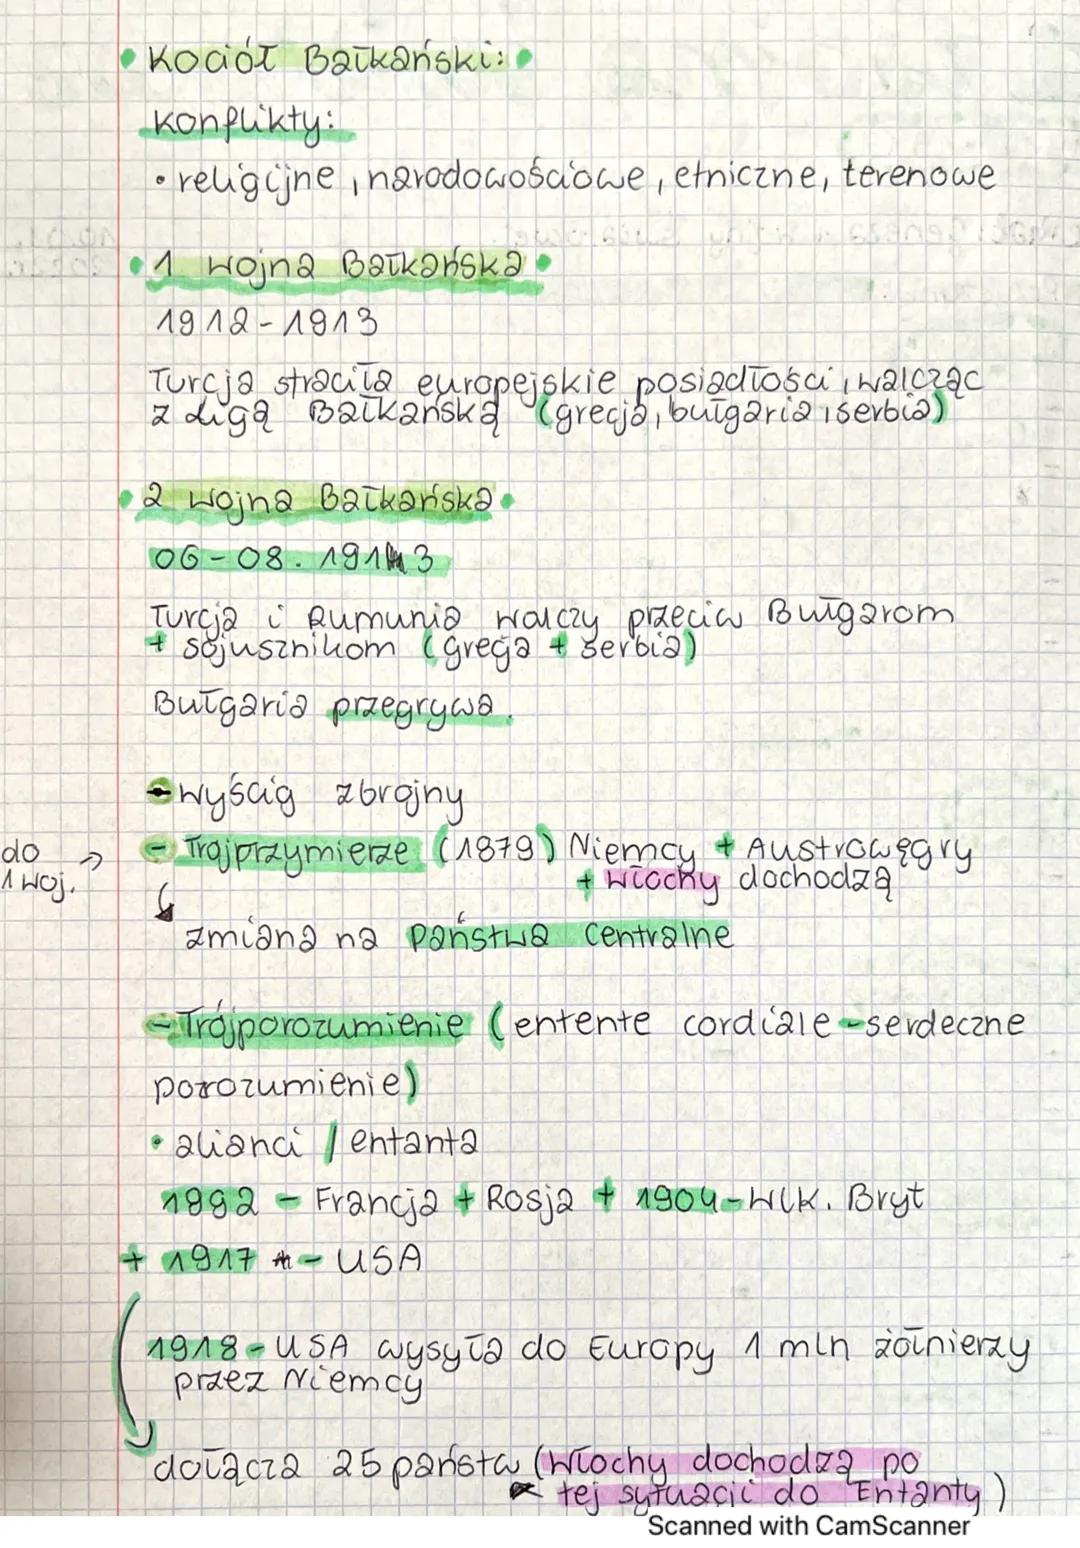 • Kocioł Bałkański: •
Konflikty:
• religijne, narodowościowe, etniczne, terenowe
• 1 wojna Bałkańska •
1912-1913
Turcja straciła europejskie posiadłości, walcząc
z Ligą Bałkańską (grecja, bułgaria i serbia)
• 2 wojna Bałkańska •
06-08. 1913
Turcja i Rumunia walczy przeciw Bułgarom
+ sojusznikom (grecja + serbia)
Bułgaria przegrywa.
- wyścig zbrojny
do 1 woj. → - Trójprzymierze (1879) Niemcy + Austrowęgry
+ włochy dochodzą
zmiana na państwa centralne
- Trójporozumienie (entente cordiale - serdeczne
porozumienie)
• alianci / entanta
1892 - Francja + Rosja + 1904 - Wlk. Bryt
+ 1917 - USA
1918 - USA wysyła do Europy 1 mln żołnierzy
przez Niemcy
dołącza 25 państw (Włochy dochodzą po
tej sytuacji do Entanty)
Scanned with CamScanner